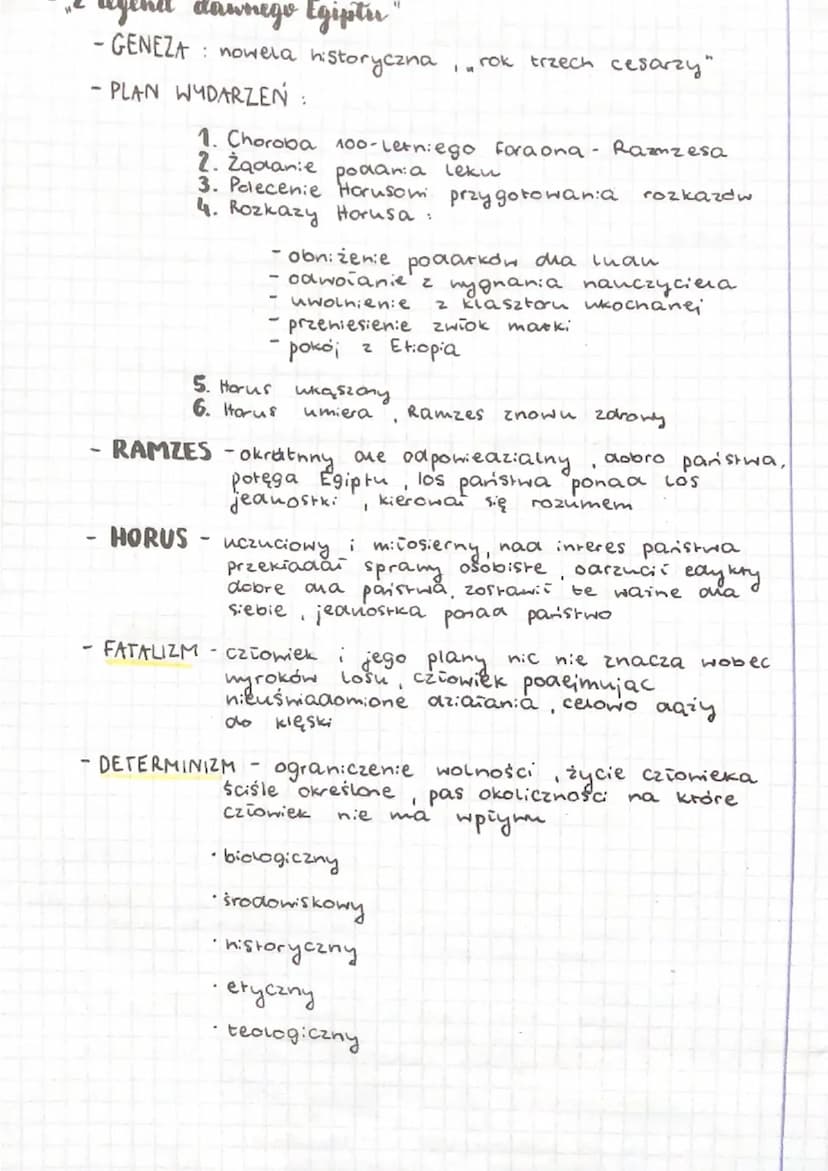 "Z legend dawnego Egiptu"
- GENEZA : nowela historyczna , „rok trzech cesarzy"
- PLAN WYDARZEŃ :
1. Choroba 100-letniego faraona - Ramzesa
2. Żądanie podania leku
3. Polecenie Horusowi przygotowania rozkazów
4. Rozkazy Horusa :
- obniżenie podatków dla ludu
- odwołanie z wygnania nauczyciela
- uwolnienie z klasztoru ukochanej
- przeniesienie zwłok matki
- pokój z Etiopią
5. Horus ukąszony
6. Horus umiera , Ramzes znowu zdrowy
- RAMZES - okrutnny ale odpowiedzialny , dobro państwa,
potęga Egiptu , los państwa ponad los
jednostki , kierował się rozumem
- HORUS - uczuciowy i miłosierny, nad interes państwa
przekładał sprawy osobiste , odrzucić edykty
dobre dla państwa, zostawić te ważne dla
siebie , jednostka ponad państwo
- FATALIZM - człowiek i jego plany nic nie znacza wobec
wyroków losu , człowiek podejmując
nieuświadomione działania , celowo dąży
do klęski
- DETERMINIZM - ograniczenie wolności , życie człowieka
ściśle określone , pas okoliczności na które
człowiek nie ma wpływu
· biologiczny
· środowiskowy
· historyczny
· etyczny
· teologiczny